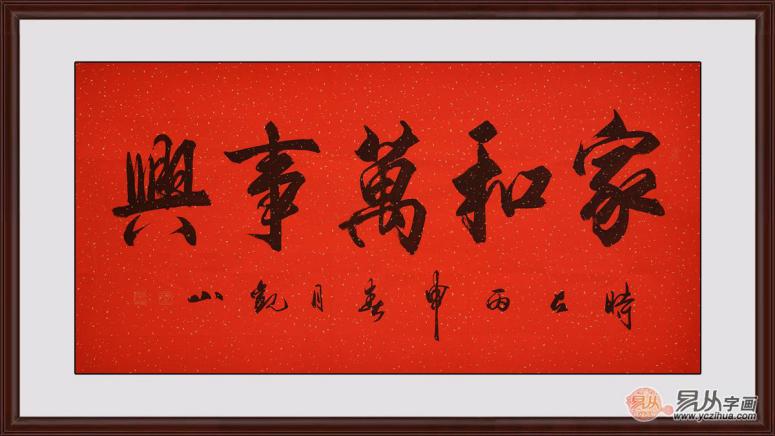 家和萬事興
時在丙申春月觀山
易从字画
www.yczihua.com